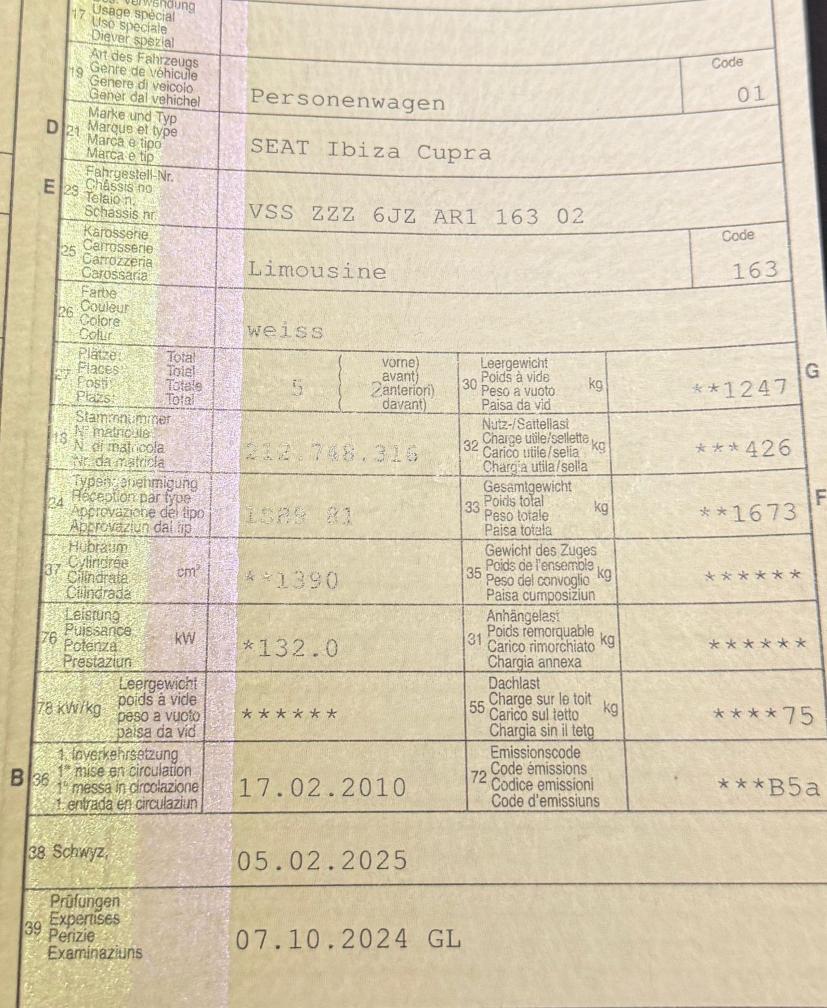 17 Usage spécial
Uso speciale
Diever spezial
19 Art des Fahrzeugs
Genre de véhicule
Genere di veicolo
Gener dal vehichel
Personenwagen
Code
01
D
21 Marke und Typ
Marque et type
Marca e tipo
Marca e tip
SEAT Ibiza Cupra
E
23 Fahrgestell-Nr.
Châssis no
Telaio n.
Schassis nr.
VSS ZZZ 6JZ AR1 163 02
25 Karosserie
Carrosserie
Carrozzeria
Carossaria
Limousine
Code
163
26 Farbe
Couleur
Colore
Colur
weiss
27 Plätze: Total
Places: Total
Posti: Totale
Plazs: Total
5
( vorne)
avant)
2 anteriori)
( davant)
30 Leergewicht
Poids à vide
Peso a vuoto
Paisa da vid
kg
**1247
G
18 Stammnummer
N° matricule
N. di matricola
Nr. da matricla
212.748.316
32 Nutz-/Sattellast
Charge utile/sellette
Carico utile/sella
Chargia utila/sella
kg
***426
24 Typengenehmigung
Réception par type
Approvazione del tipo
Approvaziun dal tip
33 Gesamtgewicht
Poids total
Peso totale
Paisa totala
kg
**1673
F
37 Hubraum
Cylindrée
Cilindrata
Cilindrada
cm³
**1390
35 Gewicht des Zuges
Poids de l'ensemble
Peso del convoglio
Paisa cumposiziun
kg
******
76 Leistung
Puissance
Potenza
Prestaziun
kW
*132.0
31 Anhängelast
Poids remorquable
Carico rimorchiato
Chargia annexa
kg
******
78 kW/kg
Leergewicht
poids à vide
peso a vuoto
paisa da vid
******
55 Dachlast
Charge sur le toit
Carico sul tetto
Chargia sin il tetg
kg
****75
B
36 1. Inverkehrsetzung
1re mise en circulation
1a messa in circolazione
1. entrada en circulaziun
17.02.2010
72 Emissionscode
Code émissions
Codice emissioni
Code d'emissiuns
***B5a
38 Schwyz,
05.02.2025
39 Prüfungen
Expertises
Perizie
Examinaziuns
07.10.2024 GL